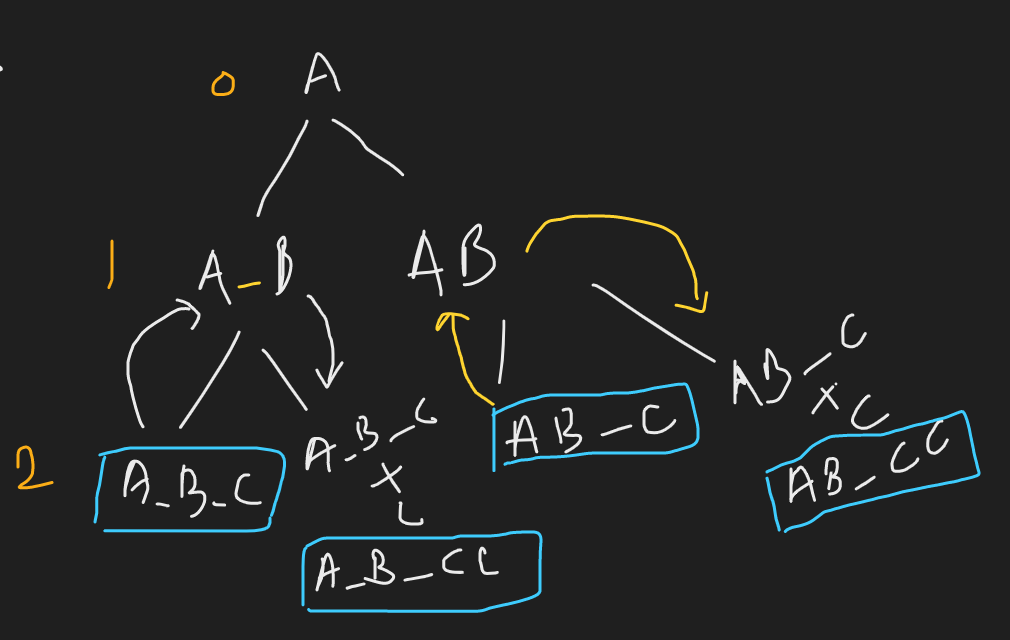 0 A
1 A_B AB
2 A_B_C A_B_C AB_C AB_C
X C X C
A_B_CC AB_CC